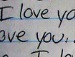 I love yo
ove you.
I l